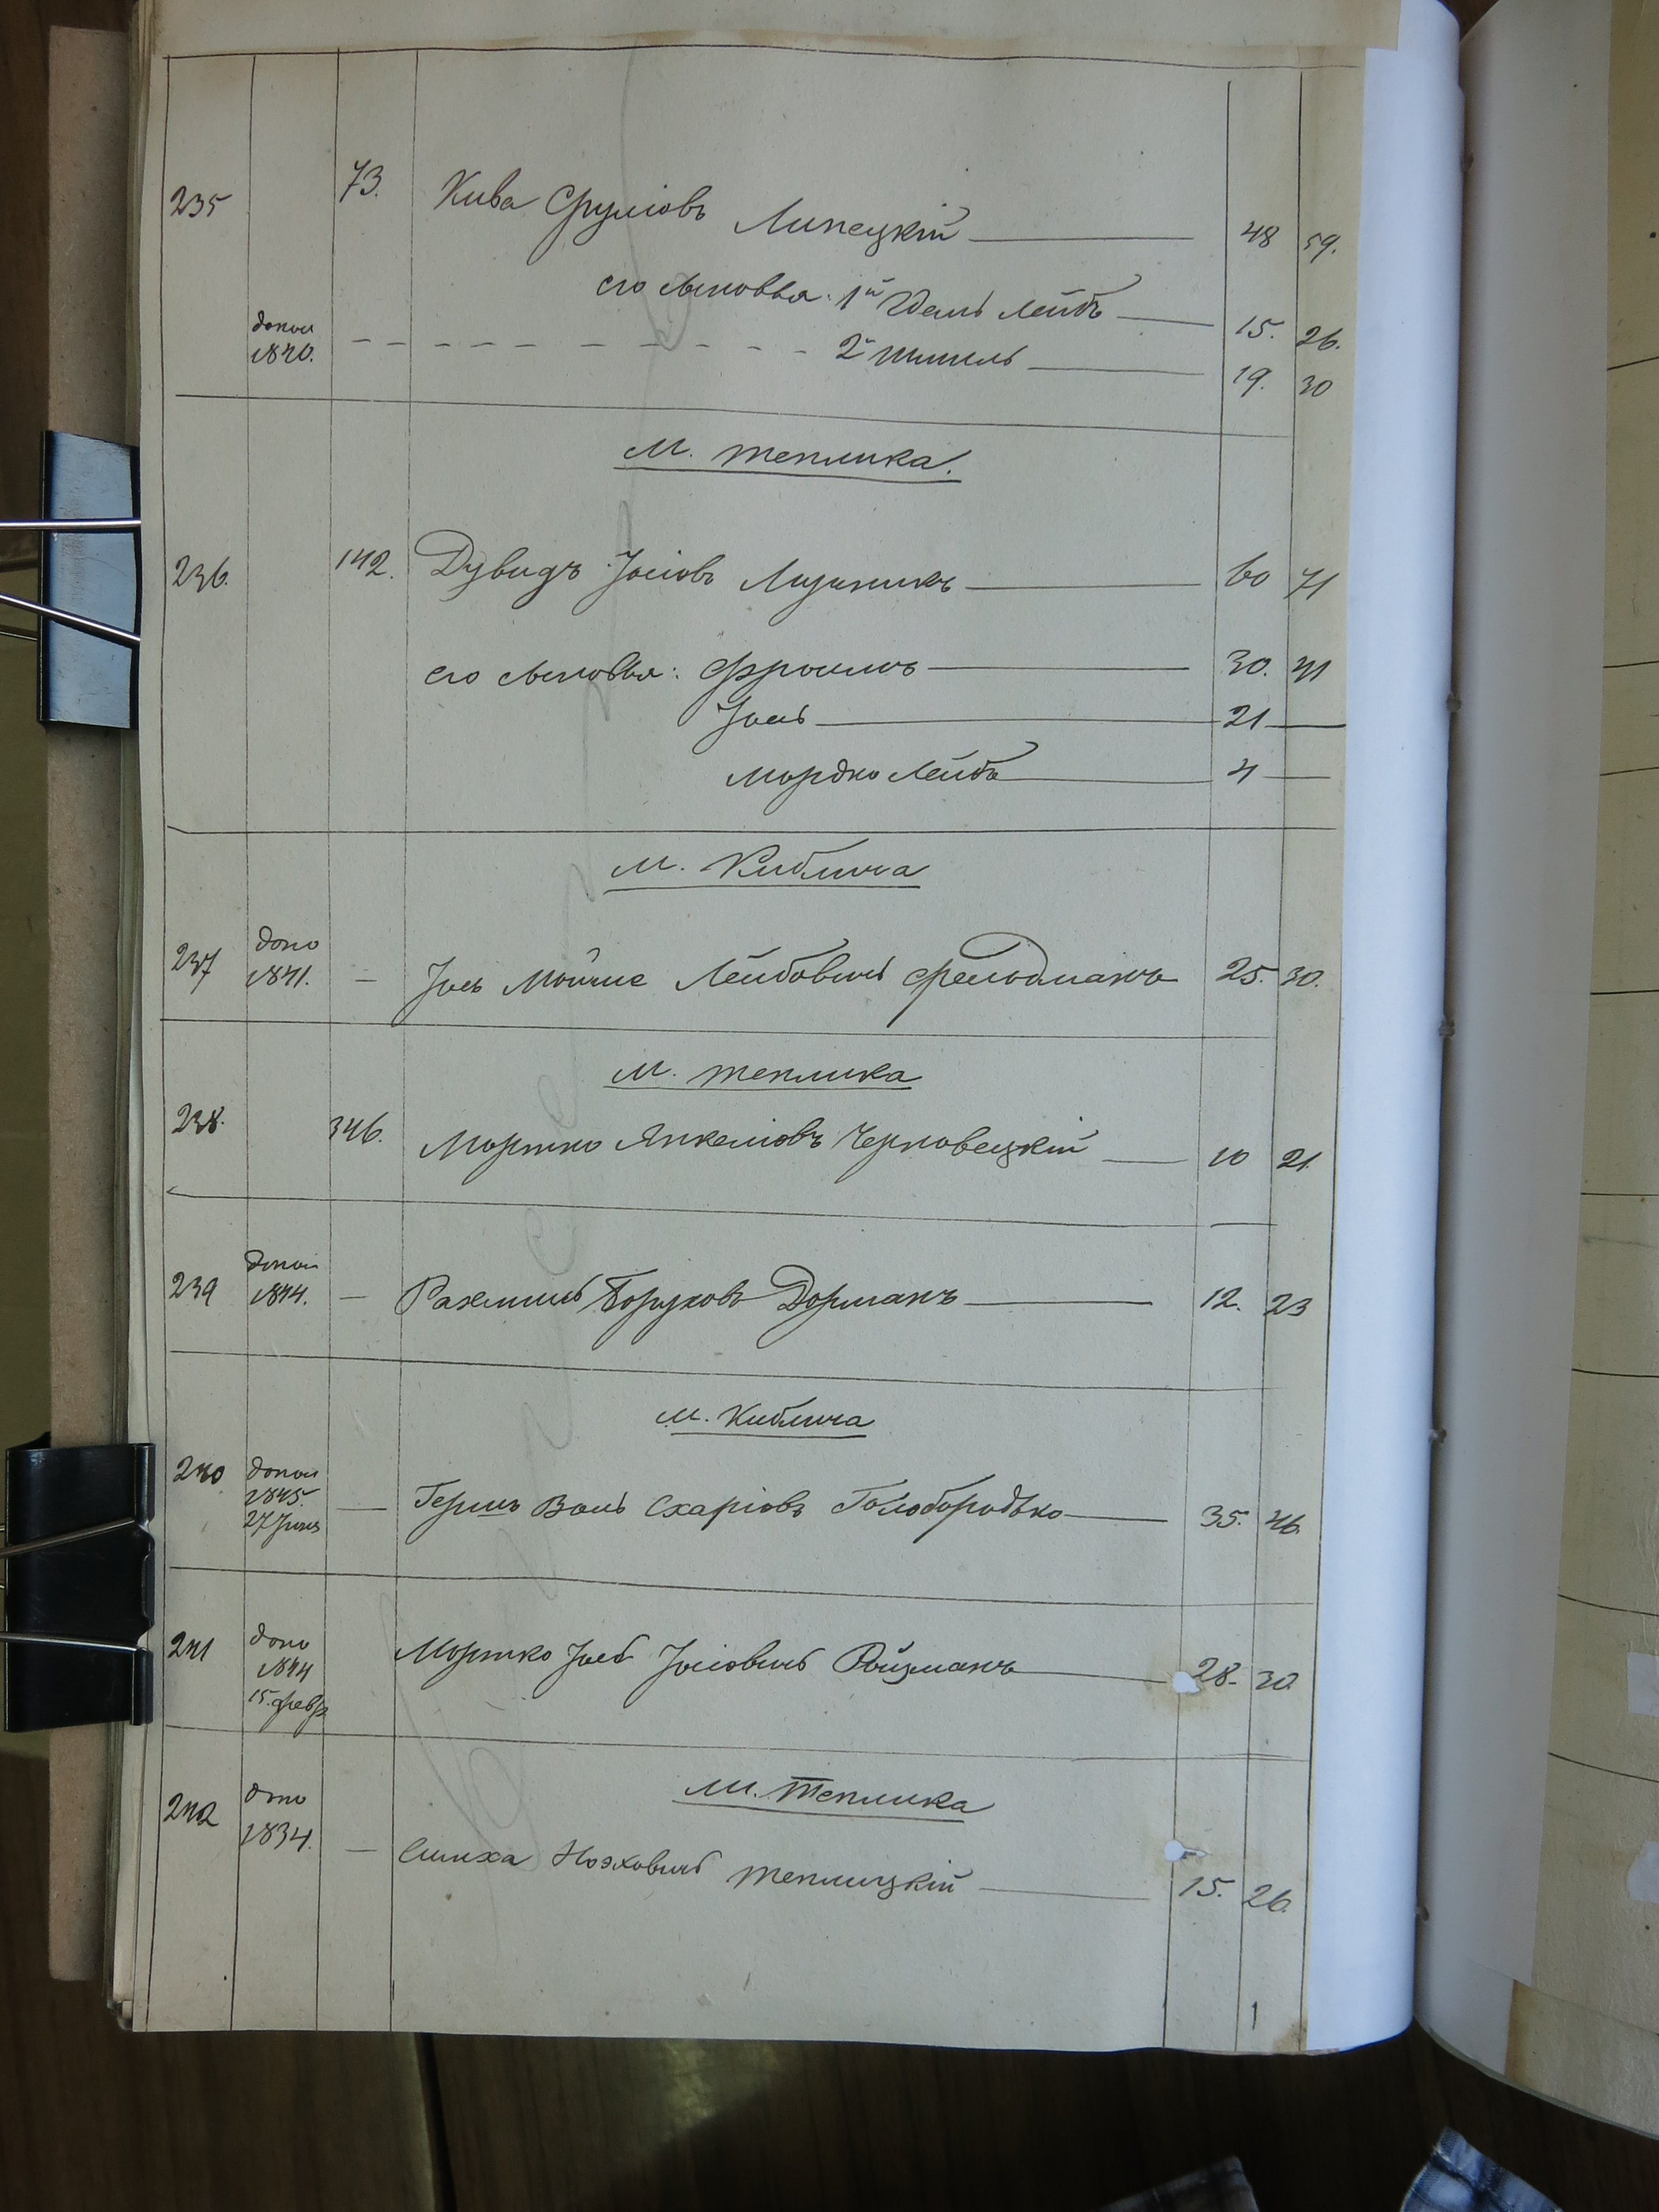 235 73. Кива Сруліовъ Липецкій 48 59.
его сыновья: 1й Удель Лейбъ 15. 26.
допол 1840. 2й Шмиль 19. 30
М. Теплика.
236. 142. Дувидъ Іосіовъ Лирникъ 60 71
его сыновья: Фроимъ 30. 41
Іось 21
Мордко Лейба 4
М. Киблича
237 допо 1841. Іось Мойше Лейбовичъ Фельдманъ 25. 30.
М. Теплика
238. 346. Мортко Янкеліовъ Черновецкій 10 21.
239 допол 1844. Рахмиль Боруховъ Дорманъ 12. 23
М. Киблича
240 допол 1845. 27 ГершъВоль Схаріовъ Голобородько 35. 46.
241 допо 1844 15. февр Мортко Іось Іосіовичъ Ройзманъ 28. 30.
М. Теплика
242 допо 1834. Симха Нозховичъ Теплицкій 15. 26.